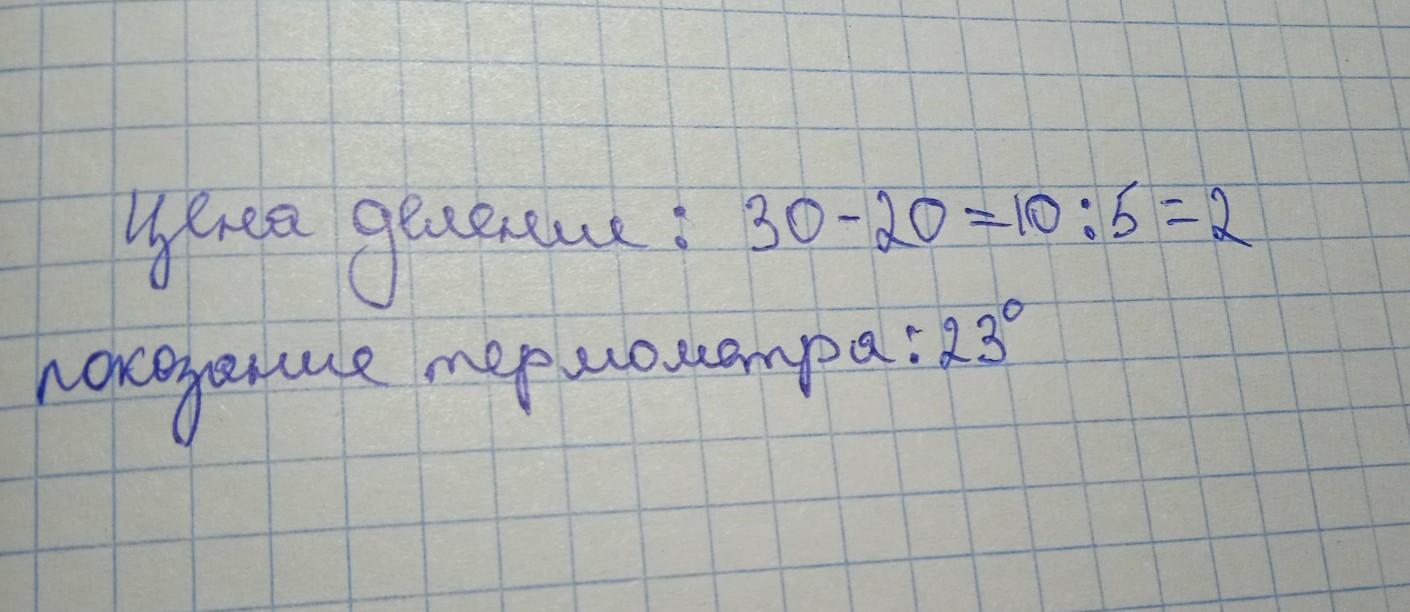 Цена деление : 30-20=10:5=2
показание термометра: 23°